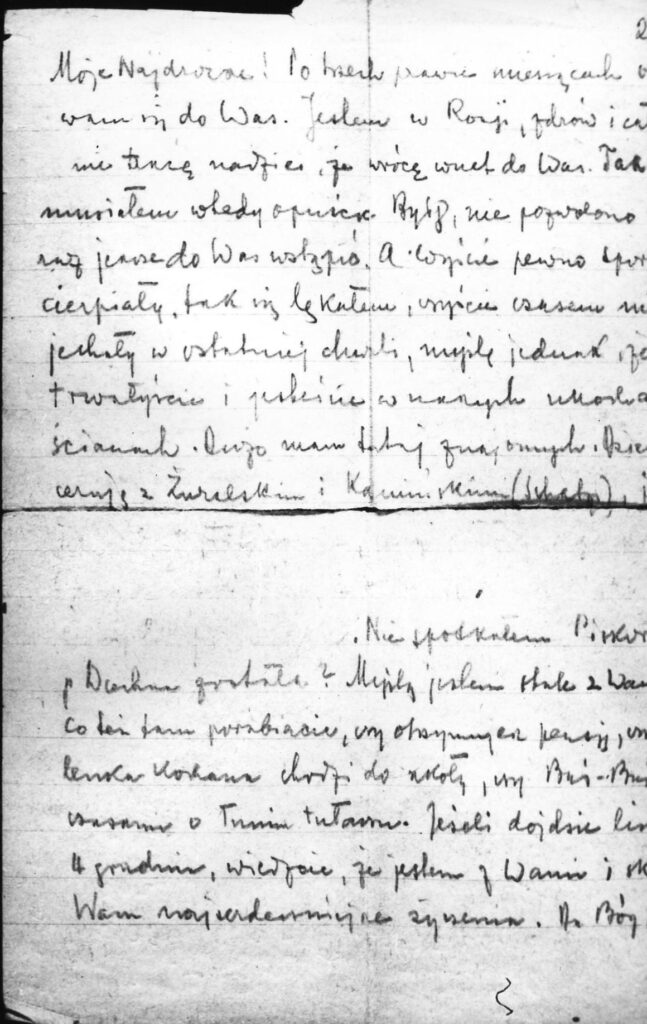 2
Moje Najdroższe! Po trzech prawie miesiącach o
wam się do Was. Jestem w Rosji, zdrów i ca
nie tracę nadziei, że wrócę wnet do Was. Tak
musiałem wtedy opuścić Bydg, nie pozwolono
raz jeszcze do Was wstąpić. A Wyście pewno spor
cierpiały, tak się lękałem, czyście czasem n
jechały w ostatniej chwili, myślę jednak, że
trwałyście i jesteście w naszych
ścianach. Dużo mam tutaj znajomych.
z Żuralskim i Kamińskim (Schatz), i
Nie spotkałem Piskor
p została? Myślą jestem stale z Wam
co też tam porabiacie, czy otrzymujesz pensję, czy
leńka Kochana chodzi do szkoły, czy Buś-Buś
czasami o Tuniu tułaczu. Jeżeli dojdzie lis
4 grudnia, wiedzcie, że jestem z Wami i sk
Wam najserdeczniejsze życzenia. Da Bóg